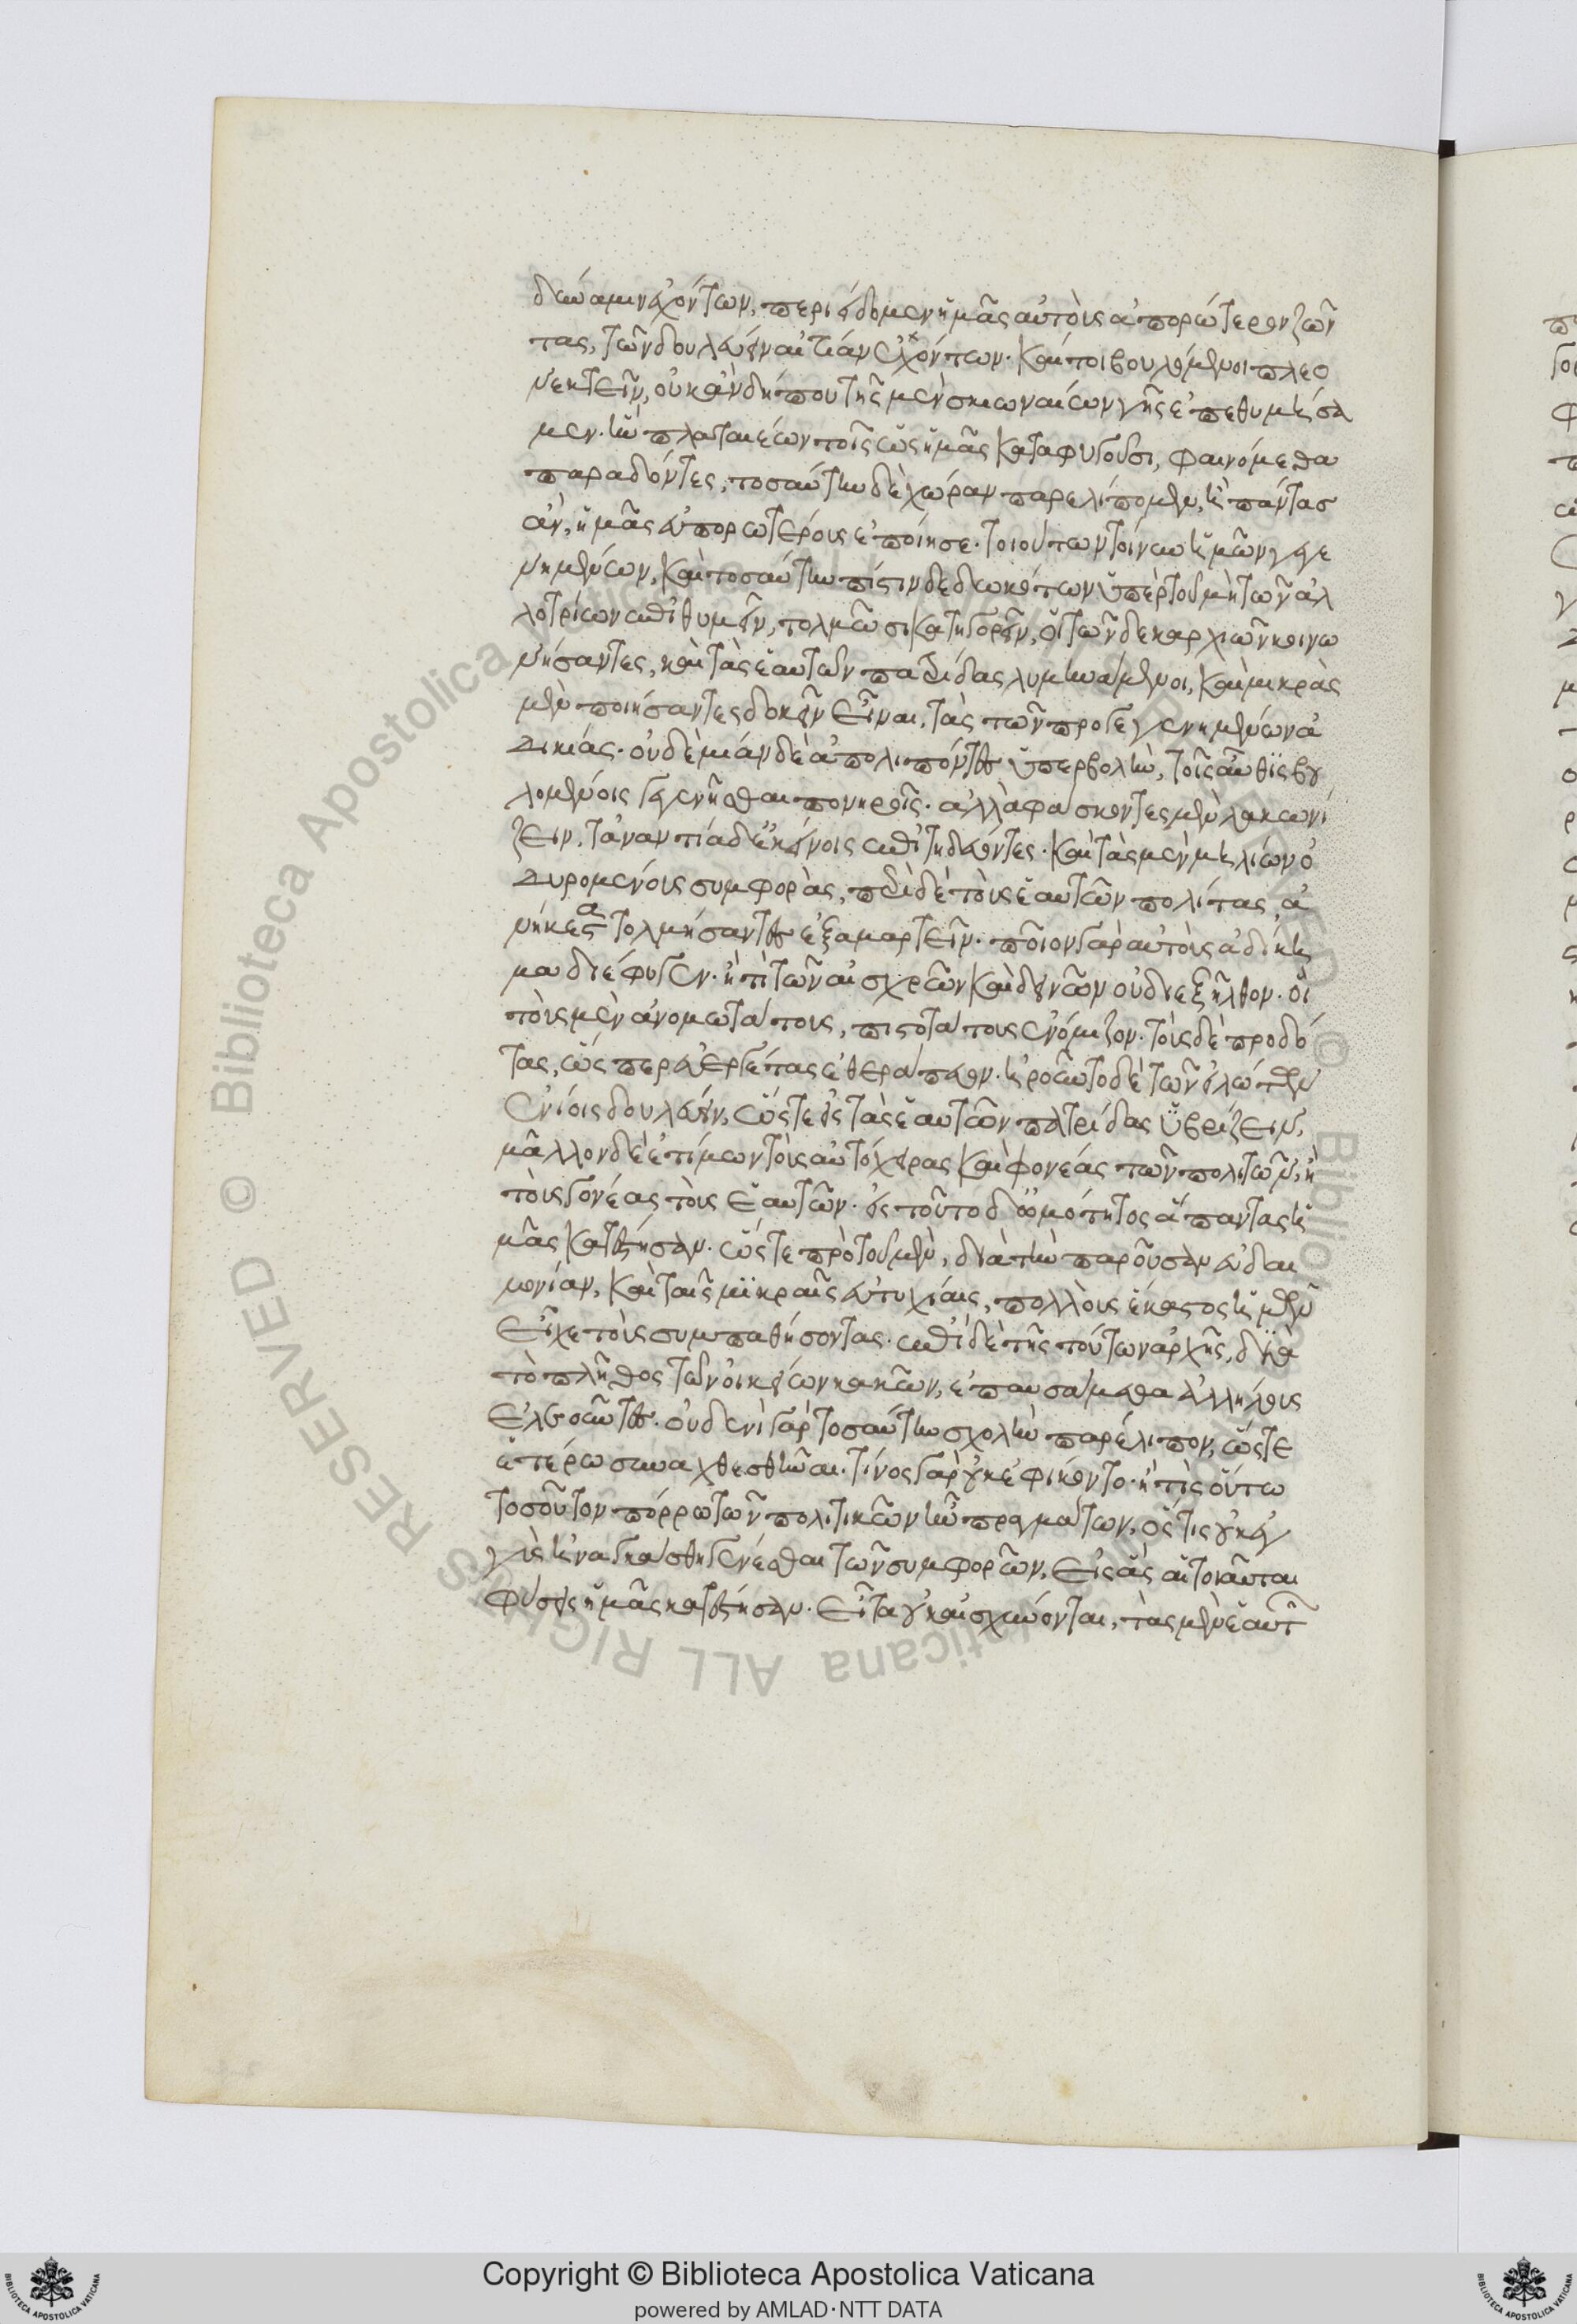 δύναμιν ἐχόντων, περιείδομεν ἡμᾶς αὐτοὺς ἀπορώτερον ζῶν
τας, τῶν δουλεύειν αἰτίαν ἐχόντων. καίτοι βουλόμενοι πλεο
νεκτεῖν, οὐκ ἂν δήπου τῆς μὲν σκιωναίων γῆς ἐπεθυμήσα
μεν. ἣν πλαταιέων τοῖς ὡς ἡμᾶς καταφυγοῦσι, φαινόμεθα
παραδόντες, τοσαύτην δὲ χώραν παρελίπομεν, ἣ πάντας
ἂν, ἡμᾶς εὐπορωτέρους ἐποίησε. τοιούτων τοίνυν ἡμῶν γεγε
νημένων, καὶ τοσαύτην πίστιν δεδωκότων ὑπὲρ τοῦ μὴ τῶν ἀλ
λοτρίων ἐπιθυμεῖν, τολμῶσι κατηγορεῖν, οἱ τῶν δεκαρχιῶν κοινω
νήσαντες, καὶ τὰς ἑαυτῶν πατρίδας λυμηνάμενοι, καὶ μικρὰς
μὲν ποιήσαντες δοκεῖν εἶναι, τὰς τῶν προγεγενημένων ἀ
δικίας. οὐδὲ μίαν δὲ ἀπολιπόντες ὑπερβολὴν, τοῖς αὖθις βου
λομένοις γενέσθαι πονηροῖς. ἀλλὰ φάσκοντες μὲν λακωνί
ζειν, τἀναντία δ' ἐκείνοις ἐπιτηδεύοντες. καὶ τὰς μὲν μηλίων ὀ
δυρομένους συμφορὰς, περὶ δὲ τοὺς ἑαυτῶν πολίτας, ἀ
νήκεστα τολμήσαντες ἐξαμαρτεῖν. ποῖον γὰρ αὐτοὺς ἀδίκη
μα διέφυγεν. ἢ τί τῶν αἰσχρῶν καὶ δεινῶν οὐ διεξῆλθον. οἳ
τοὺς μὲν ἀνομωτάτους, πιστοτάτους ἐνόμιζον. τοὺς δὲ προδό
τας, ὥσπερ εὐεργέτας ἐθεράπευον. ἡροῦντο δὲ τῶν εἱλώτων
ἐνίοις δουλεύειν, ὥστ' εἰς τὰς ἑαυτῶν πατρίδας ὑβρίζειν,
μᾶλλον δὲ ἐτίμων τοὺς αὐτόχειρας καὶ φονέας τῶν πολιτῶν, ἢ
τοὺς γονέας τοὺς ἑαυτῶν. εἰς τοῦτο δ' ὠμότητος ἅπαντας ἡ
μᾶς κατέστησαν. ὥστε πρὸ τοῦ μὲν, διὰ τὴν παροῦσαν εὐδαι
μονίαν, καὶ ταῖς μικραῖς ἀτυχίαις, πολλοὺς ἕκαστος ἡμῶν
εἶχε τοὺς συμπαθήσοντας. ἐπὶ δὲ τῆς τούτων ἀρχῆς, διὰ
τὸ πλῆθος τῶν οἰκείων κακῶν, ἐπαυσάμεθα ἀλλήλους
ἐλεοῦντες. οὐδενὶ γὰρ τοσαύτην σχολὴν παρέλιπον, ὥστε
ἑτέρω συναχθεσθῆναι. τίνος γὰρ οὐκ ἐφίκοντο. ἢ τίς οὕτω
τοσοῦτον πόρρω τῶν πολιτικῶν ἦν πραγμάτων, ὅστις οὐκ ἐγ
γὺς ἠναγκάσθη γενέσθαι τῶν συμφορῶν, εἰς ἃς αἱ τοιαῦται
φύσεις ἡμᾶς κατέστησαν. εἶτα οὐκ αἰσχύνονται, τὰς μὲν ἑαυτῶν